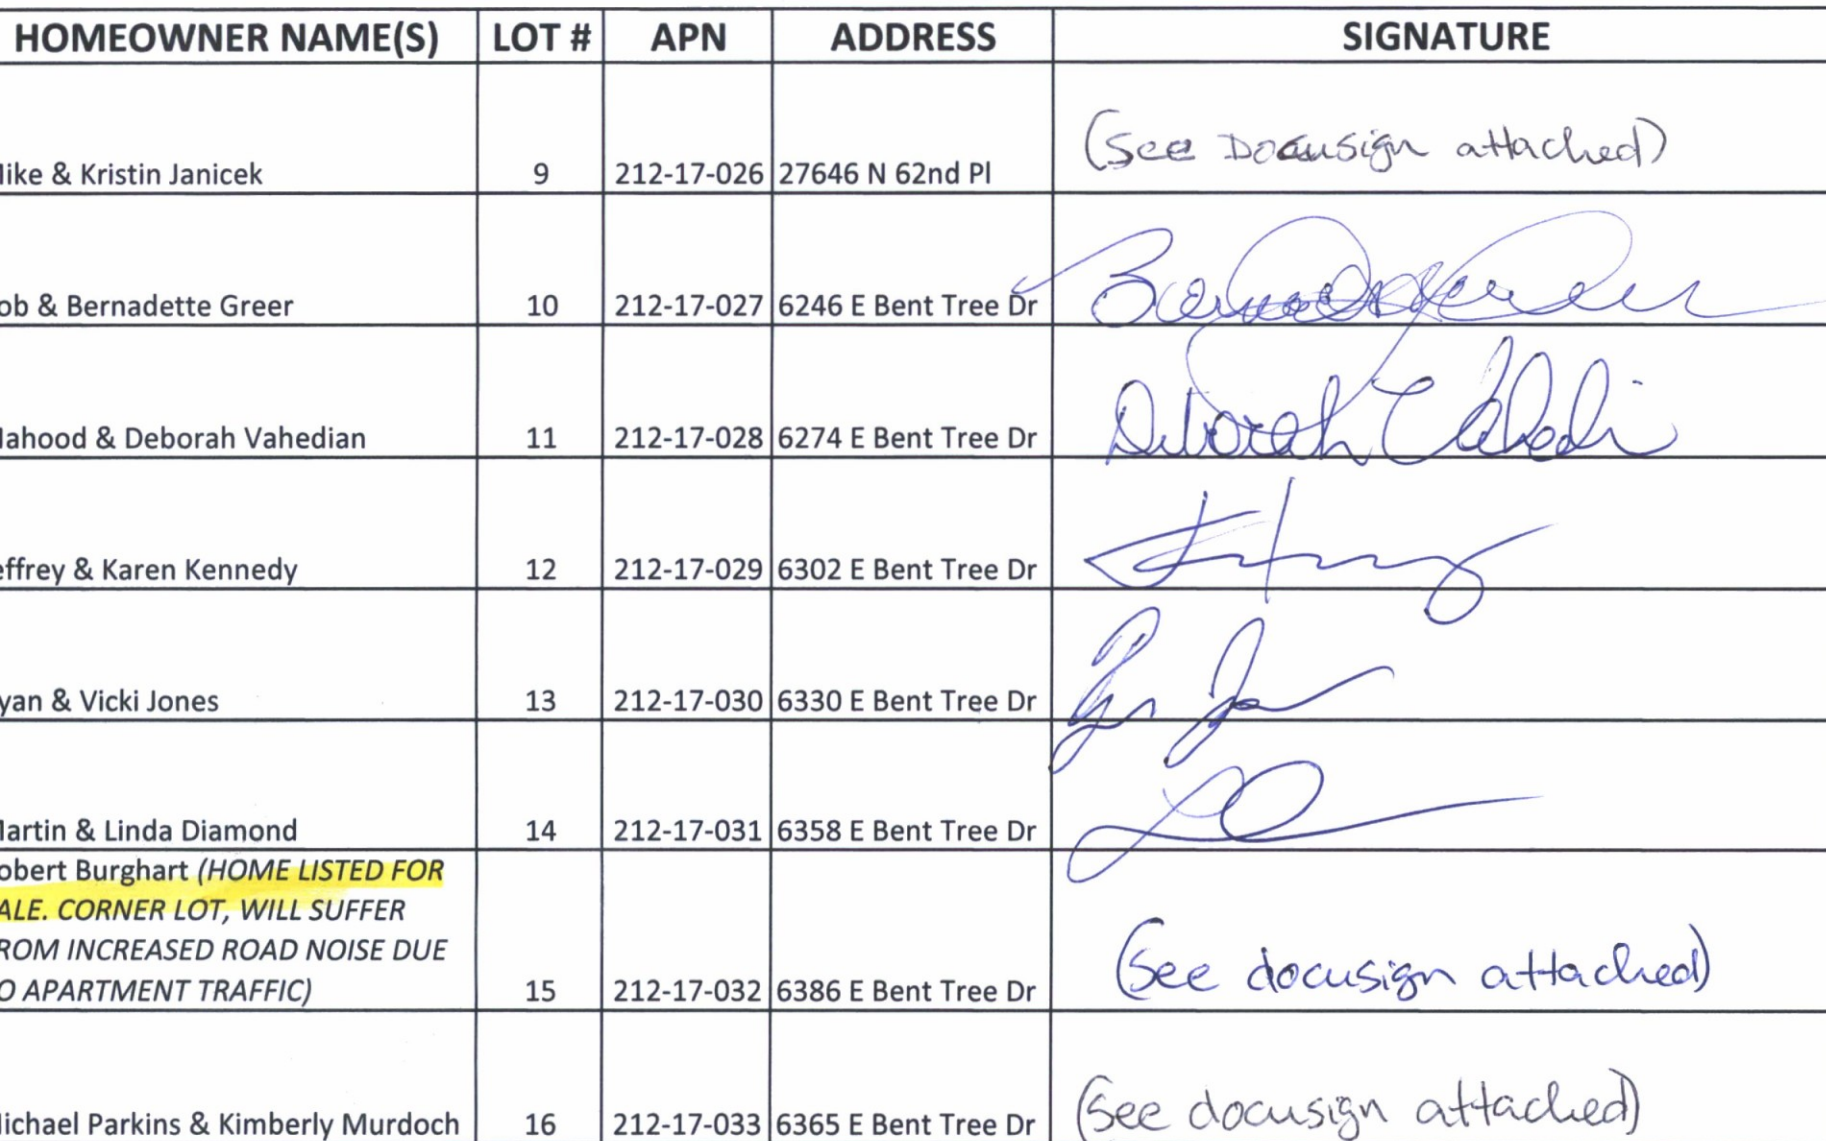 HOMEOWNER NAME(S) LOT # APN ADDRESS SIGNATURE
ike & Kristin Janicek 9 212-17-026 27646 N 62nd Pl (See Docusign attached)
ob & Bernadette Greer 10 212-17-027 6246 E Bent Tree Dr
ahood & Deborah Vahedian 11 212-17-028 6274 E Bent Tree Dr Deborah Vahedi
effrey & Karen Kennedy 12 212-17-029 6302 E Bent Tree Dr
yan & Vicki Jones 13 212-17-030 6330 E Bent Tree Dr
artin & Linda Diamond 14 212-17-031 6358 E Bent Tree Dr
obert Burghart (HOME LISTED FOR
ALE. CORNER LOT, WILL SUFFER
ROM INCREASED ROAD NOISE DUE
O APARTMENT TRAFFIC) 15 212-17-032 6386 E Bent Tree Dr (See docusign attached)
ichael Parkins & Kimberly Murdoch 16 212-17-033 6365 E Bent Tree Dr (See docusign attached)